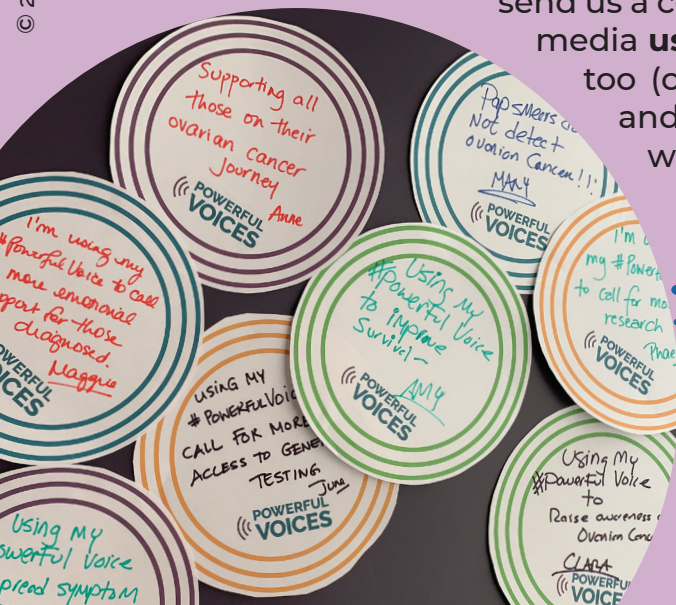 ©
send us a
media us
too (o
and
w
Supporting all
those on their
ovarian cancer
Journey
Anne
POWERFUL
VOICES
Pap smears
Not detect
Ovarian Cancer!!!
MARY
POWERFUL
VOICES
I'm using my
#Powerful Voice to call
more emotional
pport for those
diagnosed.
Maggie
POWERFUL
VOICES
Using My
#Powerful Voice
to improve
Survival-
AMY
POWERFUL
VOICES
I'm u
my #Powerf
to call for mo
research
Phae
POWERFUL
VOICES
USING MY
#POWERFULVoic
CALL FOR MORE
ACCESS TO GENE
TESTING
June
POWERFUL
VOICES
Using My
#Powerful Voice
to
Raise awareness
Ovarian Canc
CLARA
POWERFU
VOICES
Using My
owerful Voice
pread symptom